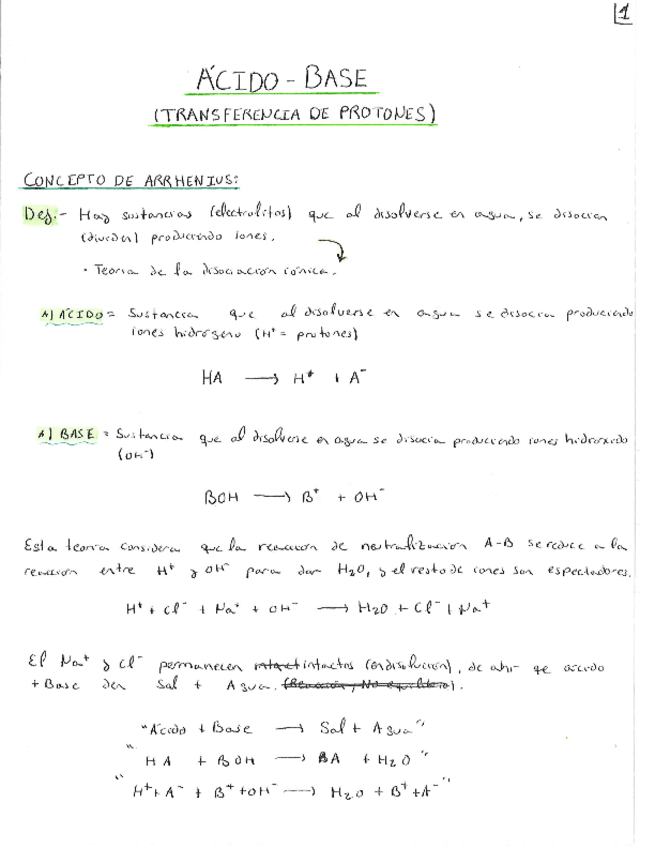 1
ÁCIDO-BASE
(TRANSFERENCIA DE PROTONES)
CONCEPTO DE ARRHENIUS:
Def.- Hay sustancias (electrolitos) que al disolverse en agua, se disocian
(dividen) produciendo iones.
· Teoría de la disociación iónica.
A) ÁCIDO = Sustancia que al disolverse en agua se disocia produciendo
iones hidrógeno (H⁺ = protones)
HA ⟶ H⁺ + A⁻
A) BASE = Sustancia que al disolverse en agua se disocia produciendo iones hidroxido
(OH⁻)
BOH ⟶ B⁺ + OH⁻
Esta teoría considera que la reacción de neutralización A-B se reduce a la
reacción entre H⁺ y OH⁻ para dar H2O, y el resto de iones son espectadores.
H⁺ + Cl⁻ + Na⁺ + OH⁻ ⟶ H2O + Cl⁻ + Na⁺
El Na⁺ y Cl⁻ permanecen intactos (en disolución), de ahí qe ácido
+ Base den Sal + Agua. (Reacción, No equilibrio).
"Ácido + Base ⟶ Sal + Agua"
"HA + BOH ⟶ BA + H2O"
"H⁺ + A⁻ + B⁺ + OH⁻ ⟶ H2O + B⁺ + A⁻"